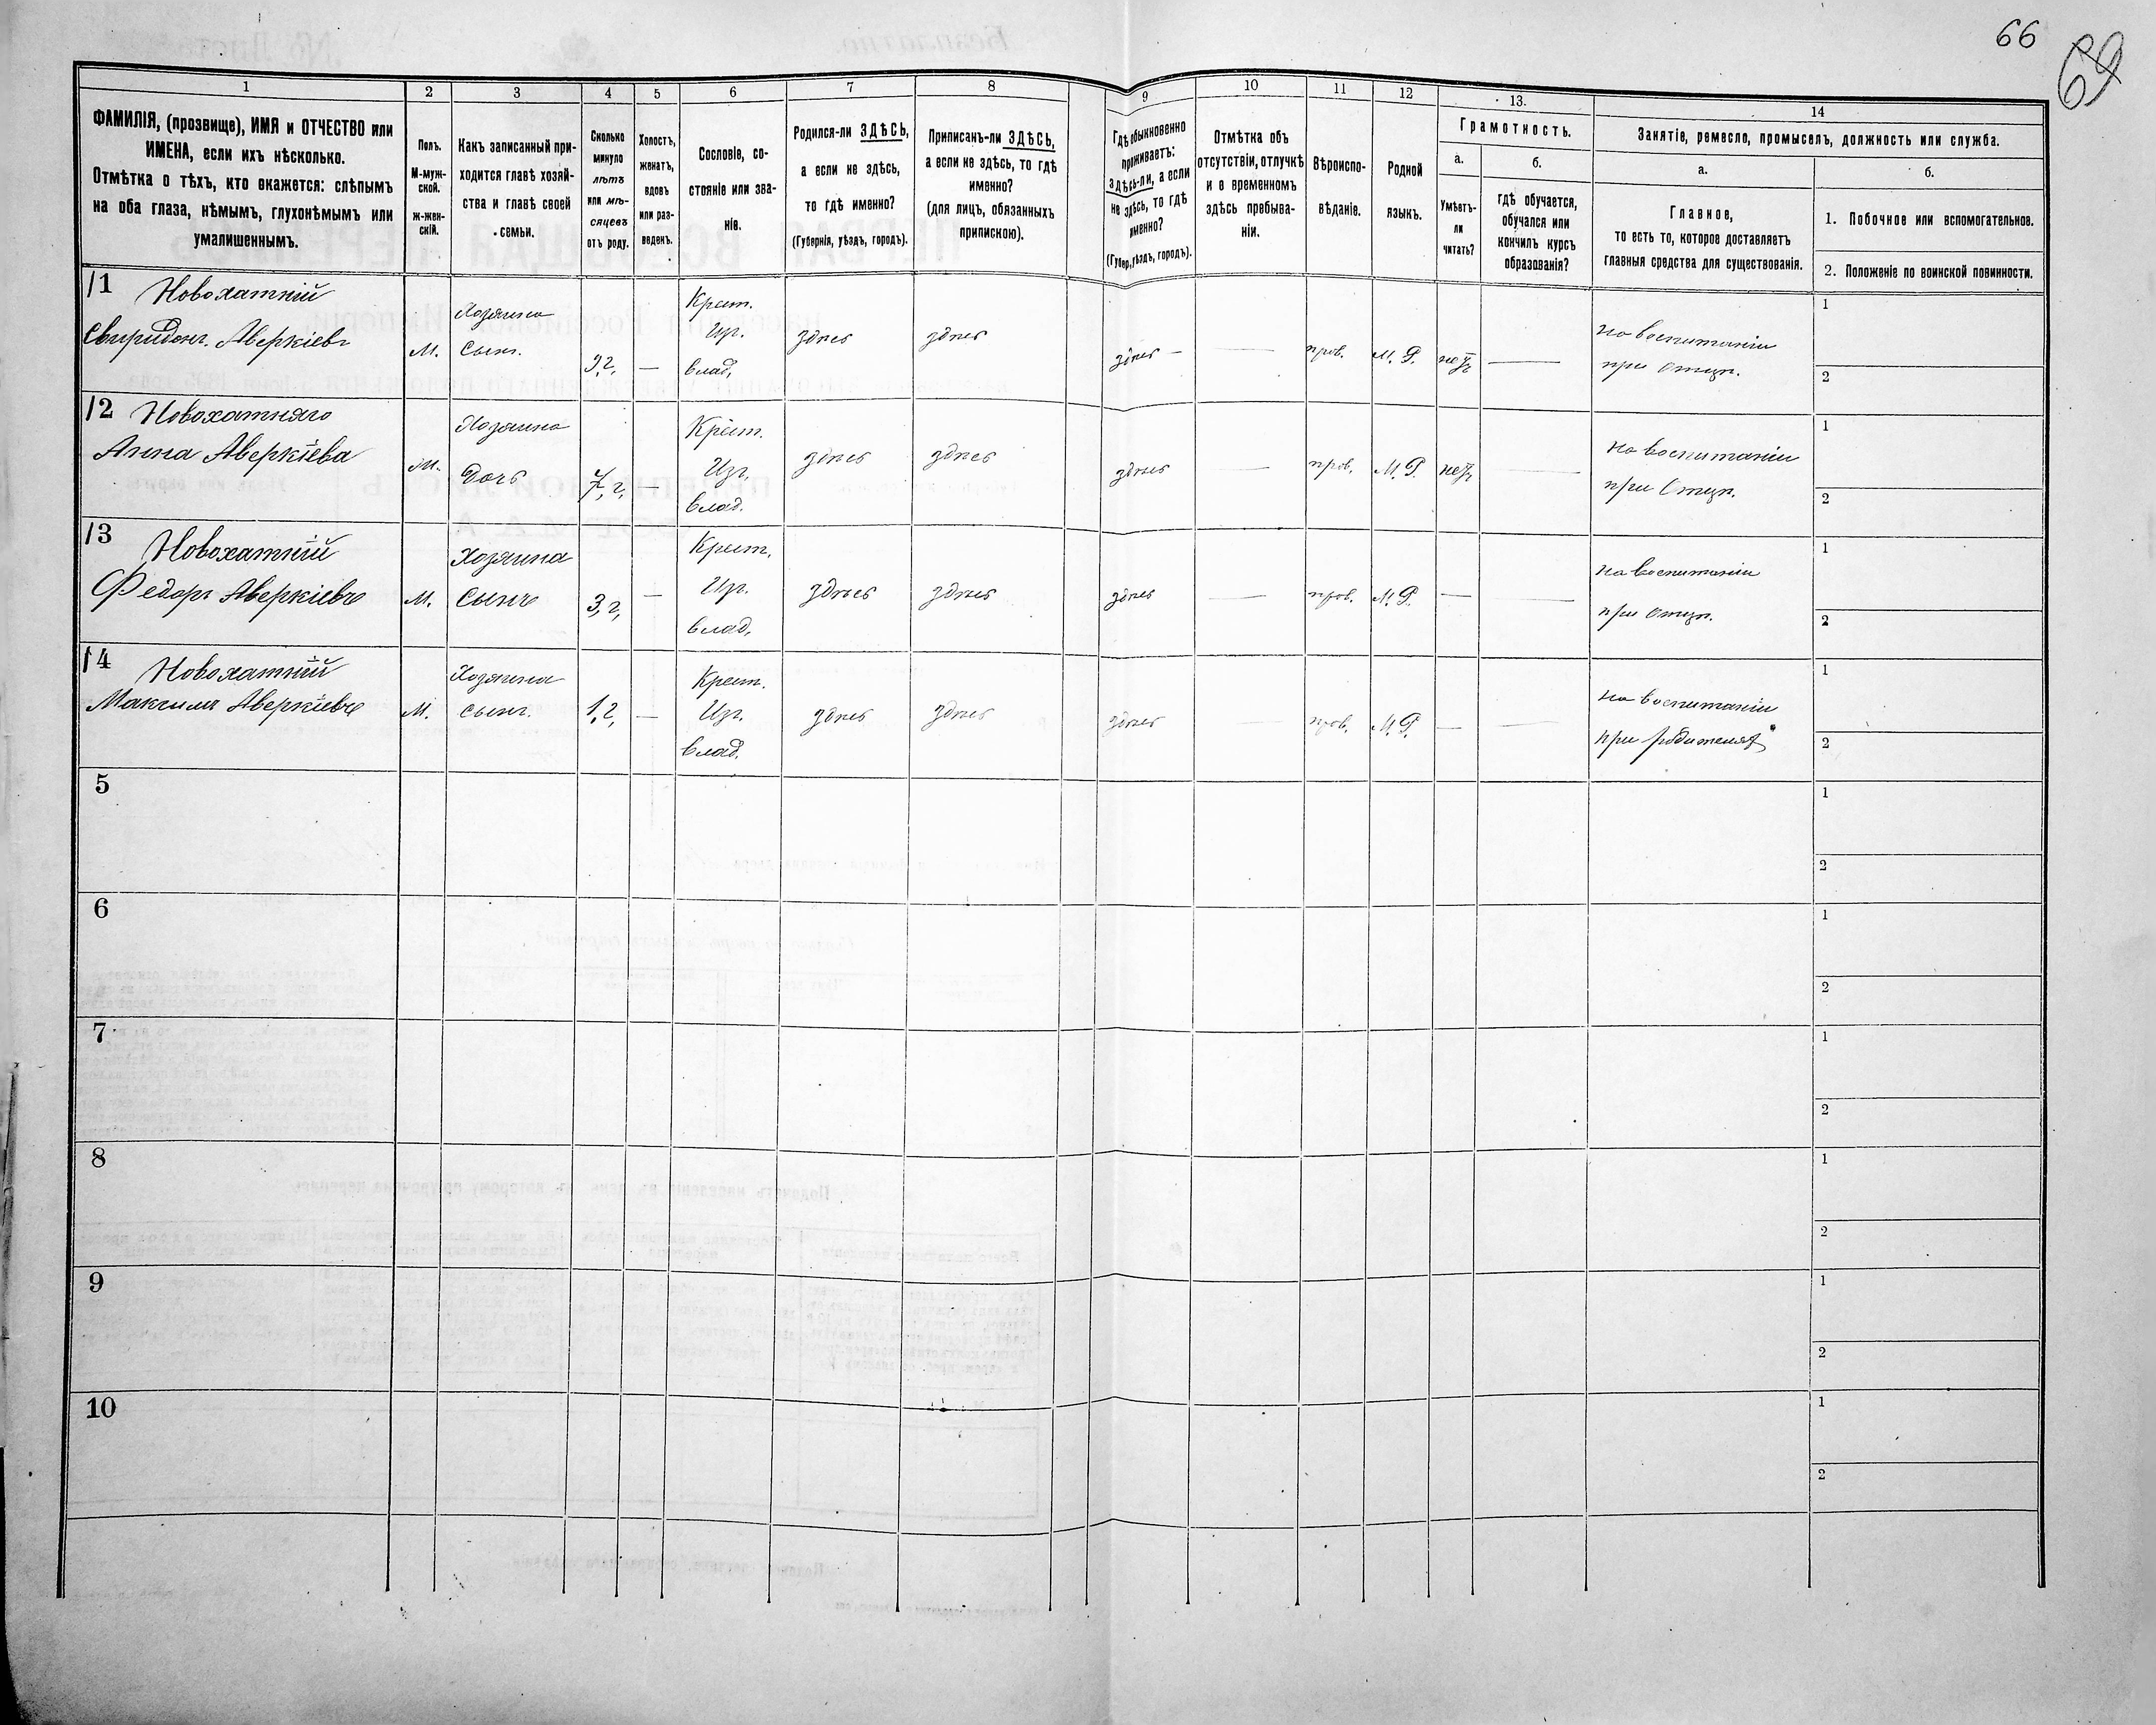 66
69
1
2
3
4
5
6
7
8
9
10
11
12
13.
14
ФАМИЛІЯ, (прозвище), ИМЯ и ОТЧЕСТВО или
ИМЕНА, если ихъ нѣсколько.
Отмѣтка о тѣхъ, кто окажется: слѣпымъ
на оба глаза, нѣмымъ, глухонѣмымъ или
умалишеннымъ.
Полъ.
М-муж-
ской.
ж-жен-
скій.
Какъ записанный при-
ходится главѣ хозяй-
ства и главѣ своей
семьи.
Сколько
минуло
лѣтъ
или мѣ-
сяцевъ
отъ роду.
Холостъ,
женатъ,
вдовъ
или раз-
веденъ.
Сословіе, со-
стояніе или зва-
ніе.
Родился-ли ЗДѢСЬ,
а если не здѣсь,
то гдѣ именно?
(Губернія, уѣздъ, городъ).
Приписанъ-ли ЗДѢСЬ,
а если не здѣсь, то гдѣ
именно?
(для лицъ, обязанныхъ
припискою).
Гдѣ обыкновенно
проживаетъ:
здѣсь-ли, а если
не здѣсь, то гдѣ
именно?
(Губер., уѣздъ, городъ).
Отмѣтка объ
отсутствіи, отлучкѣ
и о временномъ
здѣсь пребыва-
ніи.
Вѣроиспо-
вѣданіе.
Родной
языкъ.
Грамотность.
а.
Умѣетъ-
ли
читать?
б.
гдѣ обучается,
обучался или
кончилъ курсъ
образованія?
Занятіе, ремесло, промыселъ, должность или служба.
а.
Главное,
то есть то, которое доставляетъ
главныя средства для существованія.
б.
1. Побочное или вспомогательное.
2. Положеніе по воинской повинности.
11
Новохатній
Свиридонъ Аверкіевъ
М.
Хозяина
Сынъ.
9 г.
—
Крест.
Из.
влад.
здѣсь
здѣсь
здѣсь
—
прав.
М. Р.
нѣтъ
—
на воспитаніи
при Отцѣ.
1
2
12
Новохатняго
Анна Аверкіева
М.
Хозяина
Дочь
7 г.
—
Крест.
Из.
влад.
здѣсь
здѣсь
здѣсь
—
прав.
М. Р.
нѣтъ
—
на воспитаніи
при Отцѣ.
1
2
13
Новохатній
Федоръ Аверкіевъ
М.
Хозяина
Сынъ
3 г.
—
Крест.
Из.
влад.
здѣсь
здѣсь
здѣсь
—
прав.
М. Р.
—
—
на воспитаніи
при Отцѣ.
1
2
14
Новохатній
Максимъ Аверкіевъ
М.
Хозяина
сынъ.
1 г.
—
Крест.
Из.
влад.
здѣсь
здѣсь
здѣсь
—
прав.
М. Р.
—
—
на воспитаніи
при родителяхъ
1
2
5
1
2
6
1
2
7
1
2
8
1
2
9
1
2
10
1
2